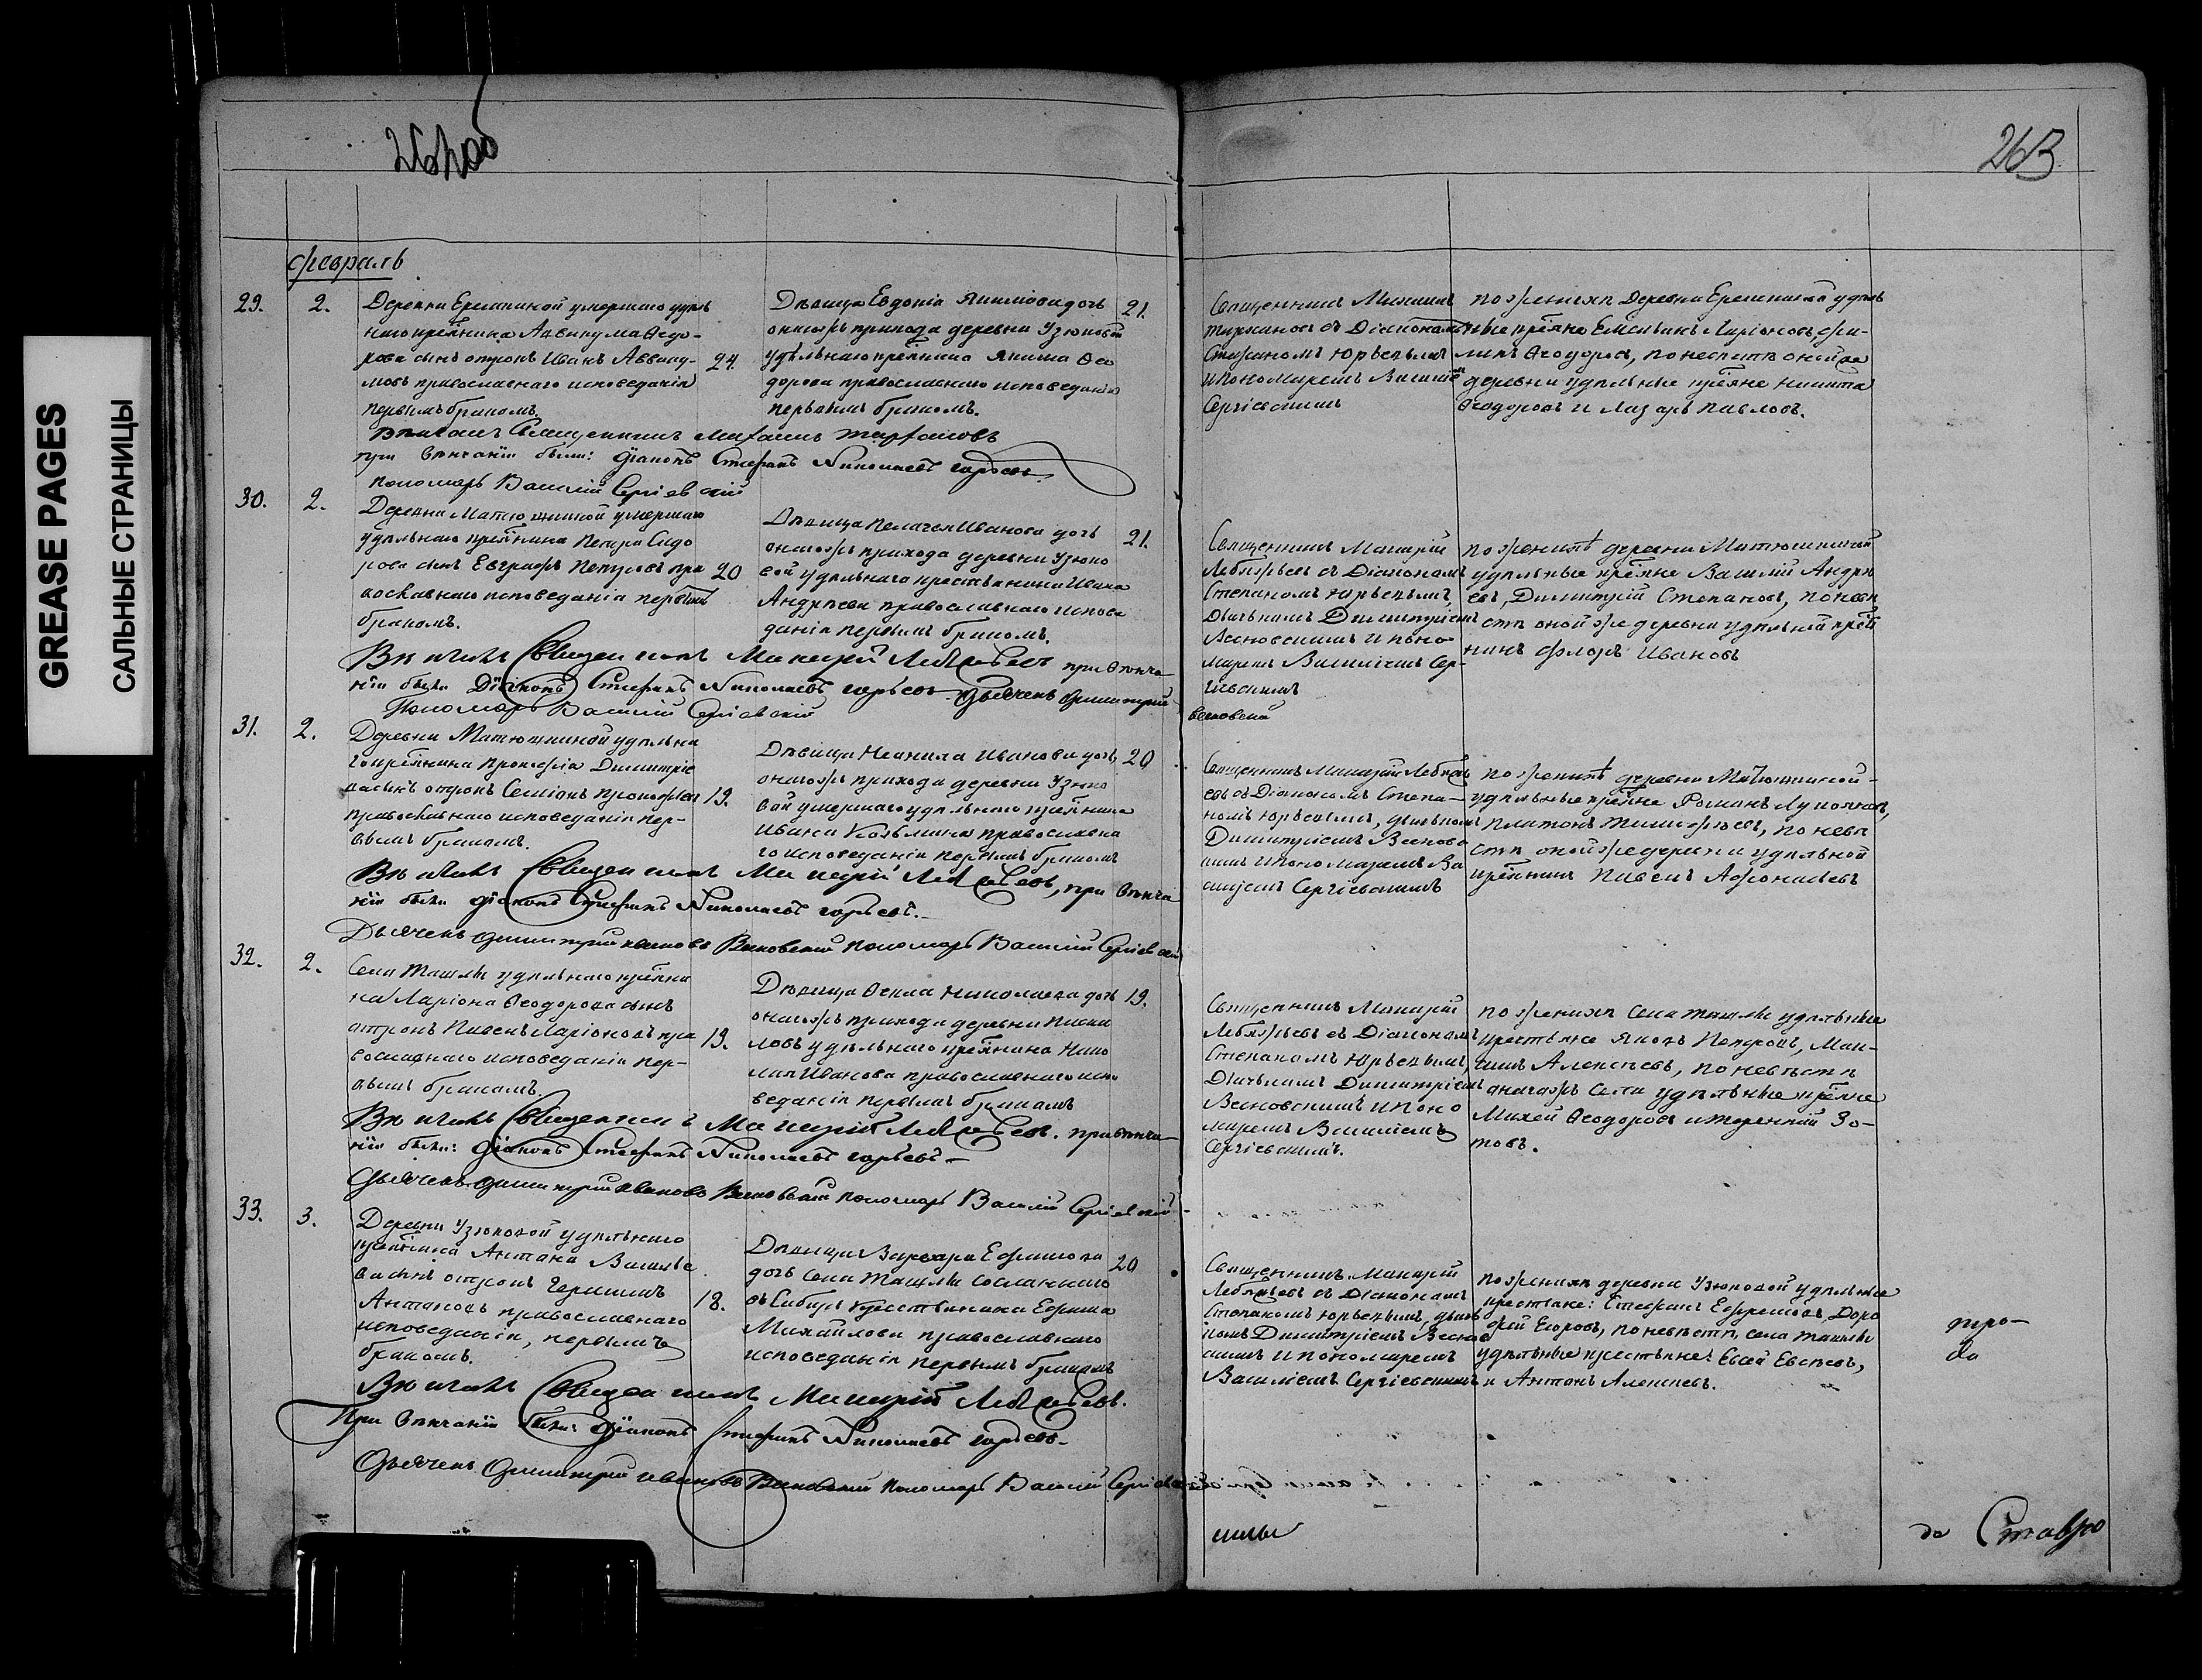 GREASE PAGES
САЛЬНЫЕ СТРАНИЦЫ
263
февраль
29.
2.
Деревни Еремкиной умершаго удѣль
наго кре͠янина Аввакума Ѳедо-
рова сынъ отрокъ Иванъ Авваку-
мовъ православнаго исповеданія
первымъ бракомъ.
24.
Дѣвица Евдокія Якимова дочь
онагожъ прихода деревни Узюковой
удѣльнаго кре͠янина Якима Ѳео
дорова православнаго исповеданія
первымъ бракомъ.
21.
Священникъ Михаилъ
съ Діакономъ
Стефаномъ Юрьевымъ
и пономаремъ Василіемъ
Сергіевскимъ
по женихѣ Деревни Еремкиной удѣль
ные кре͠яне Емельянъ Ларіоновъ, Фи-
липъ Ѳеодоровъ, по невестѣ оной же
деревни удѣльные кре͠яне Никита
Ѳеодоровъ и Лазарь Павловъ.
Вѣнчалъ Священникъ Михаилъ
при вѣнчаніи были: Діаконъ Стефанъ Николаевъ Юрьевъ.
пономарь Василій Сергіевскій
30.
2.
Деревни Матюшкиной умершаго
удѣльнаго кре͠янина Петра Сидо
рова сынъ Евграфъ Петровъ пра
вославнаго исповеданія первымъ
бракомъ.
20
Дѣвица Пелагея Иванова дочь
онагожъ прихода деревни Узюко
вой удѣльнаго крестьянина Ивана
Андреева православнаго испове
данія первымъ бракомъ.
21.
Священникъ Макарій
Лебяжьевъ съ Діакономъ
Степаномъ Юрьевымъ,
Дьячкомъ Димитріемъ
Весновскимъ и поно
маремъ Василіемъ Сер-
гіевскимъ
по женихѣ деревни Матюшкиной
удѣльные кре͠яне Василій Андре
евъ, Димитрій Степановъ, по неве
стѣ оной же деревни удѣльный кре͠я
нинъ Флоръ Ивановъ
Вѣнчалъ Священникъ Макарій Лебяжьевъ при вѣнча
ніи были Діаконъ Стефанъ Николаевъ Юрьевъ. Дьячекъ Димитрій
Весновскій
Пономарь Василій Сергіевскій
31.
2.
Деревни Матюшкиной удѣльна
го кре͠янина Прокофія Димитріе
ва сынъ отрокъ Семіонъ Прокофьев
православнаго исповеданія пер-
вымъ бракомъ.
19.
Дѣвица Неонила Иванова дочь
онагожъ прихода деревни Узюко
вой умершаго удѣльнаго кре͠янина
Ивана Козьмина православна
го исповеданія первымъ бракомъ
20
Священникъ Макарій Лебяжь
евъ съ Діакономъ Степа-
номъ Юрьевымъ, дьячкомъ
Димитріемъ Веснов
скимъ и пономаремъ Ва
силіемъ Сергіевскимъ
по женихѣ деревни Матюшкиной
удѣльные кре͠яне Романъ Лукояновъ,
Платонъ Тимофѣевъ, по неве
стѣ оной же деревни удѣльной
кре͠янинъ Павелъ Афонасьевъ
Вѣнчалъ Священникъ Макарій Лебяжьевъ, при вѣнча
ніи были Діаконъ Стефанъ Николаевъ Юрьевъ.
Дьячекъ Димитрій Ивановъ Весновскій пономарь Василій Сергіевскій
32.
2.
Села Ташлы удѣльнаго кре͠яни
на Ларіона Ѳеодорова сынъ
отрокъ Павелъ Ларіоновъ пра
вославнаго исповеданія пер-
вымъ бракомъ.
19.
Дѣвица Ѳекла Николаева дочь
онагожъ прихода деревни Писка
ловъ удѣльнаго кре͠янина Нико
лая Иванова православнаго испо
веданія первымъ бракомъ
19.
Священникъ Макарій
Лебяжьевъ съ Діакономъ
Степаномъ Юрьевымъ,
Дьячкомъ Димитріемъ
Весновскимъ и поно
маремъ Василіемъ
Сергіевскимъ.
по женихѣ села Ташлы удѣльные
крестьяне Яковъ Петровъ, Мак-
симъ Алексѣевъ, по невѣстѣ
онагожъ села удѣльные кре͠яне
Михей Ѳеодоровъ и Терентій Зо-
товъ.
Вѣнчалъ Священникъ Макарій Лебяжьевъ. при вѣнча-
ніи были: Діаконъ Стефанъ Николаевъ Юрьевъ-
Дьячекъ Димитрій Ивановъ Весновскій пономарь Василій Сергіевскій
33.
3.
Деревни Узюковой удѣльнаго
кре͠янина Антона Василье
ва сынъ отрокъ Герасимъ
Антоновъ православнаго
исповеданія, первымъ
бракомъ.
18.
Дѣвица Варвара Ефимова
дочь села Ташлы сосланнаго
въ Сибирь крестьянина Ефима
Михайлова православнаго
исповеданія первымъ бракомъ
20
Священникъ Макарій
Лебяжьевъ съ Діакономъ
Степаномъ Юрьевымъ, дьяч
комъ Димитріемъ Веснов
скимъ и пономаремъ
Василіемъ Сергіевскимъ
по женихѣ деревни Узюковой удѣльные
крестьяне: Стефанъ Ефремовъ, Доро
фей Егоровъ, по невѣстѣ, села Ташлы
удѣльные крестьяне Евсей Евсѣевъ,
и Антонъ Алексѣевъ.
Вѣнчалъ Священникъ Макарій Лебяжьевъ.
При вѣнчаніи были: Діаконъ Стефанъ Николаевъ Юрьевъ-
Дьячекъ Димитрій Ивановъ Весновскій пономарь Василій Сергіевскій
да Ставро